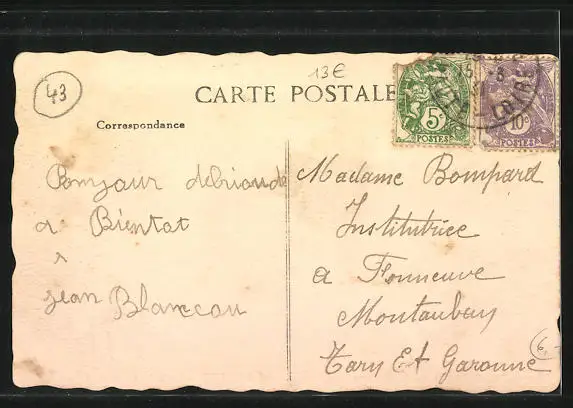 43
13€
CARTE POSTALE
5c
POSTES
10c
POSTES
HTE - LOIRE
Correspondance
Bonjour de brioude
a Bientat
Jean Blancau
Madame Bompard
Institutrice
a Fonneuve
Montauban
Tarn Et Garonne
6.-